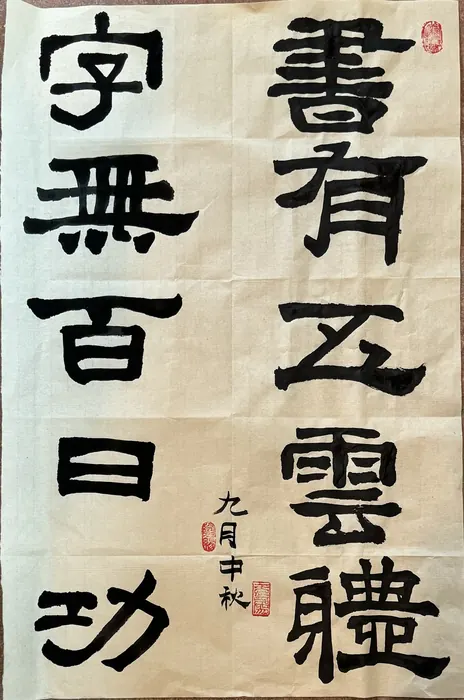 書有五雲體
字無百日功
九月中秋